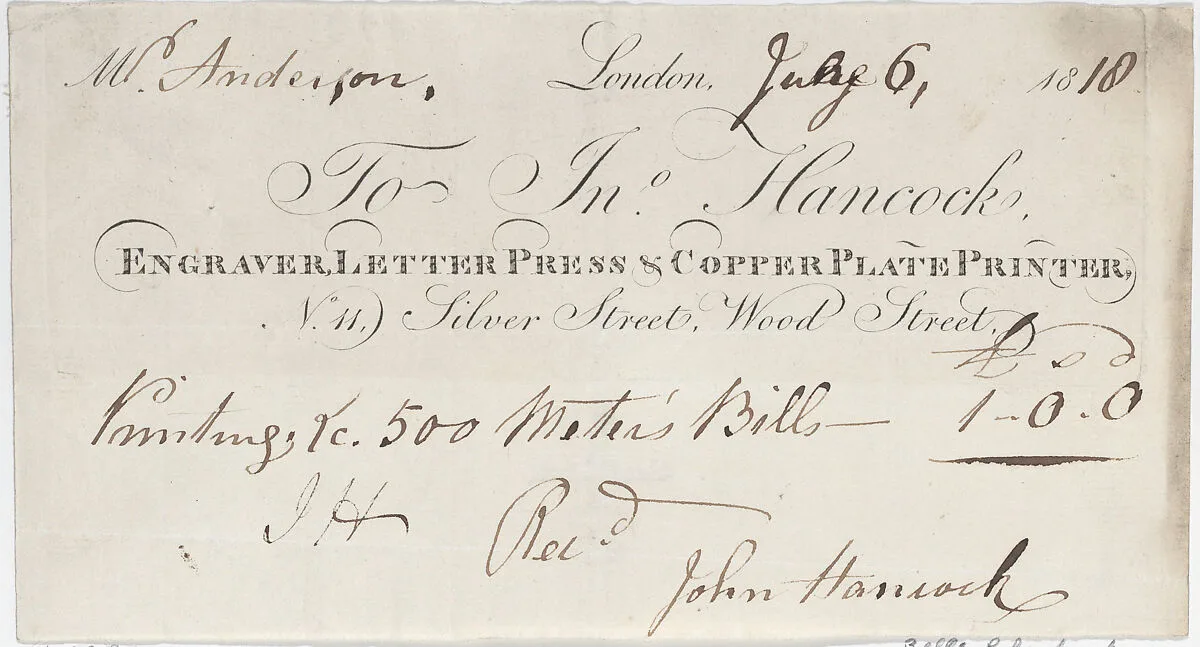 Mr. Anderson, London, July 6, 1818
To Jno. Hancock,
ENGRAVER, LETTER PRESS & COPPER PLATE PRINTER,
No. 11, Silver Street, Wood Street,
£ s d
Printing, &c. 500 Meter's Bills — 1 - 0 - 0
J H Recd
John Hancock